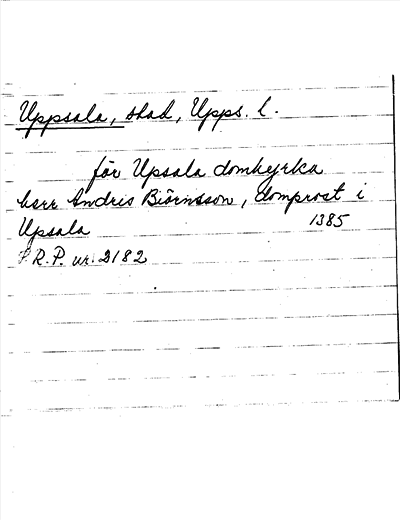 Uppsala, stad, Upps. l.
för Upsala domkyrka
herr Andris Biörnsson, domprost i
Upsala 1385
S.R.P. nr. 2182